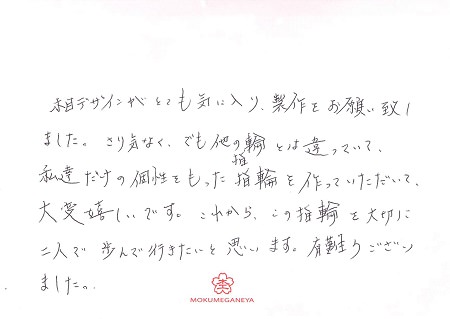 木目デザインがとても気に入り、製作をお願い致し
ました。さり気なく、でも他の指輪とは違っていて、
私達だけの個性をもった指輪を作っていただいて、
大変嬉しいです。これから、この指輪を大切に
二人で歩んで行きたいと思います。有難うござい
ました。
MOKUMEGANEYA